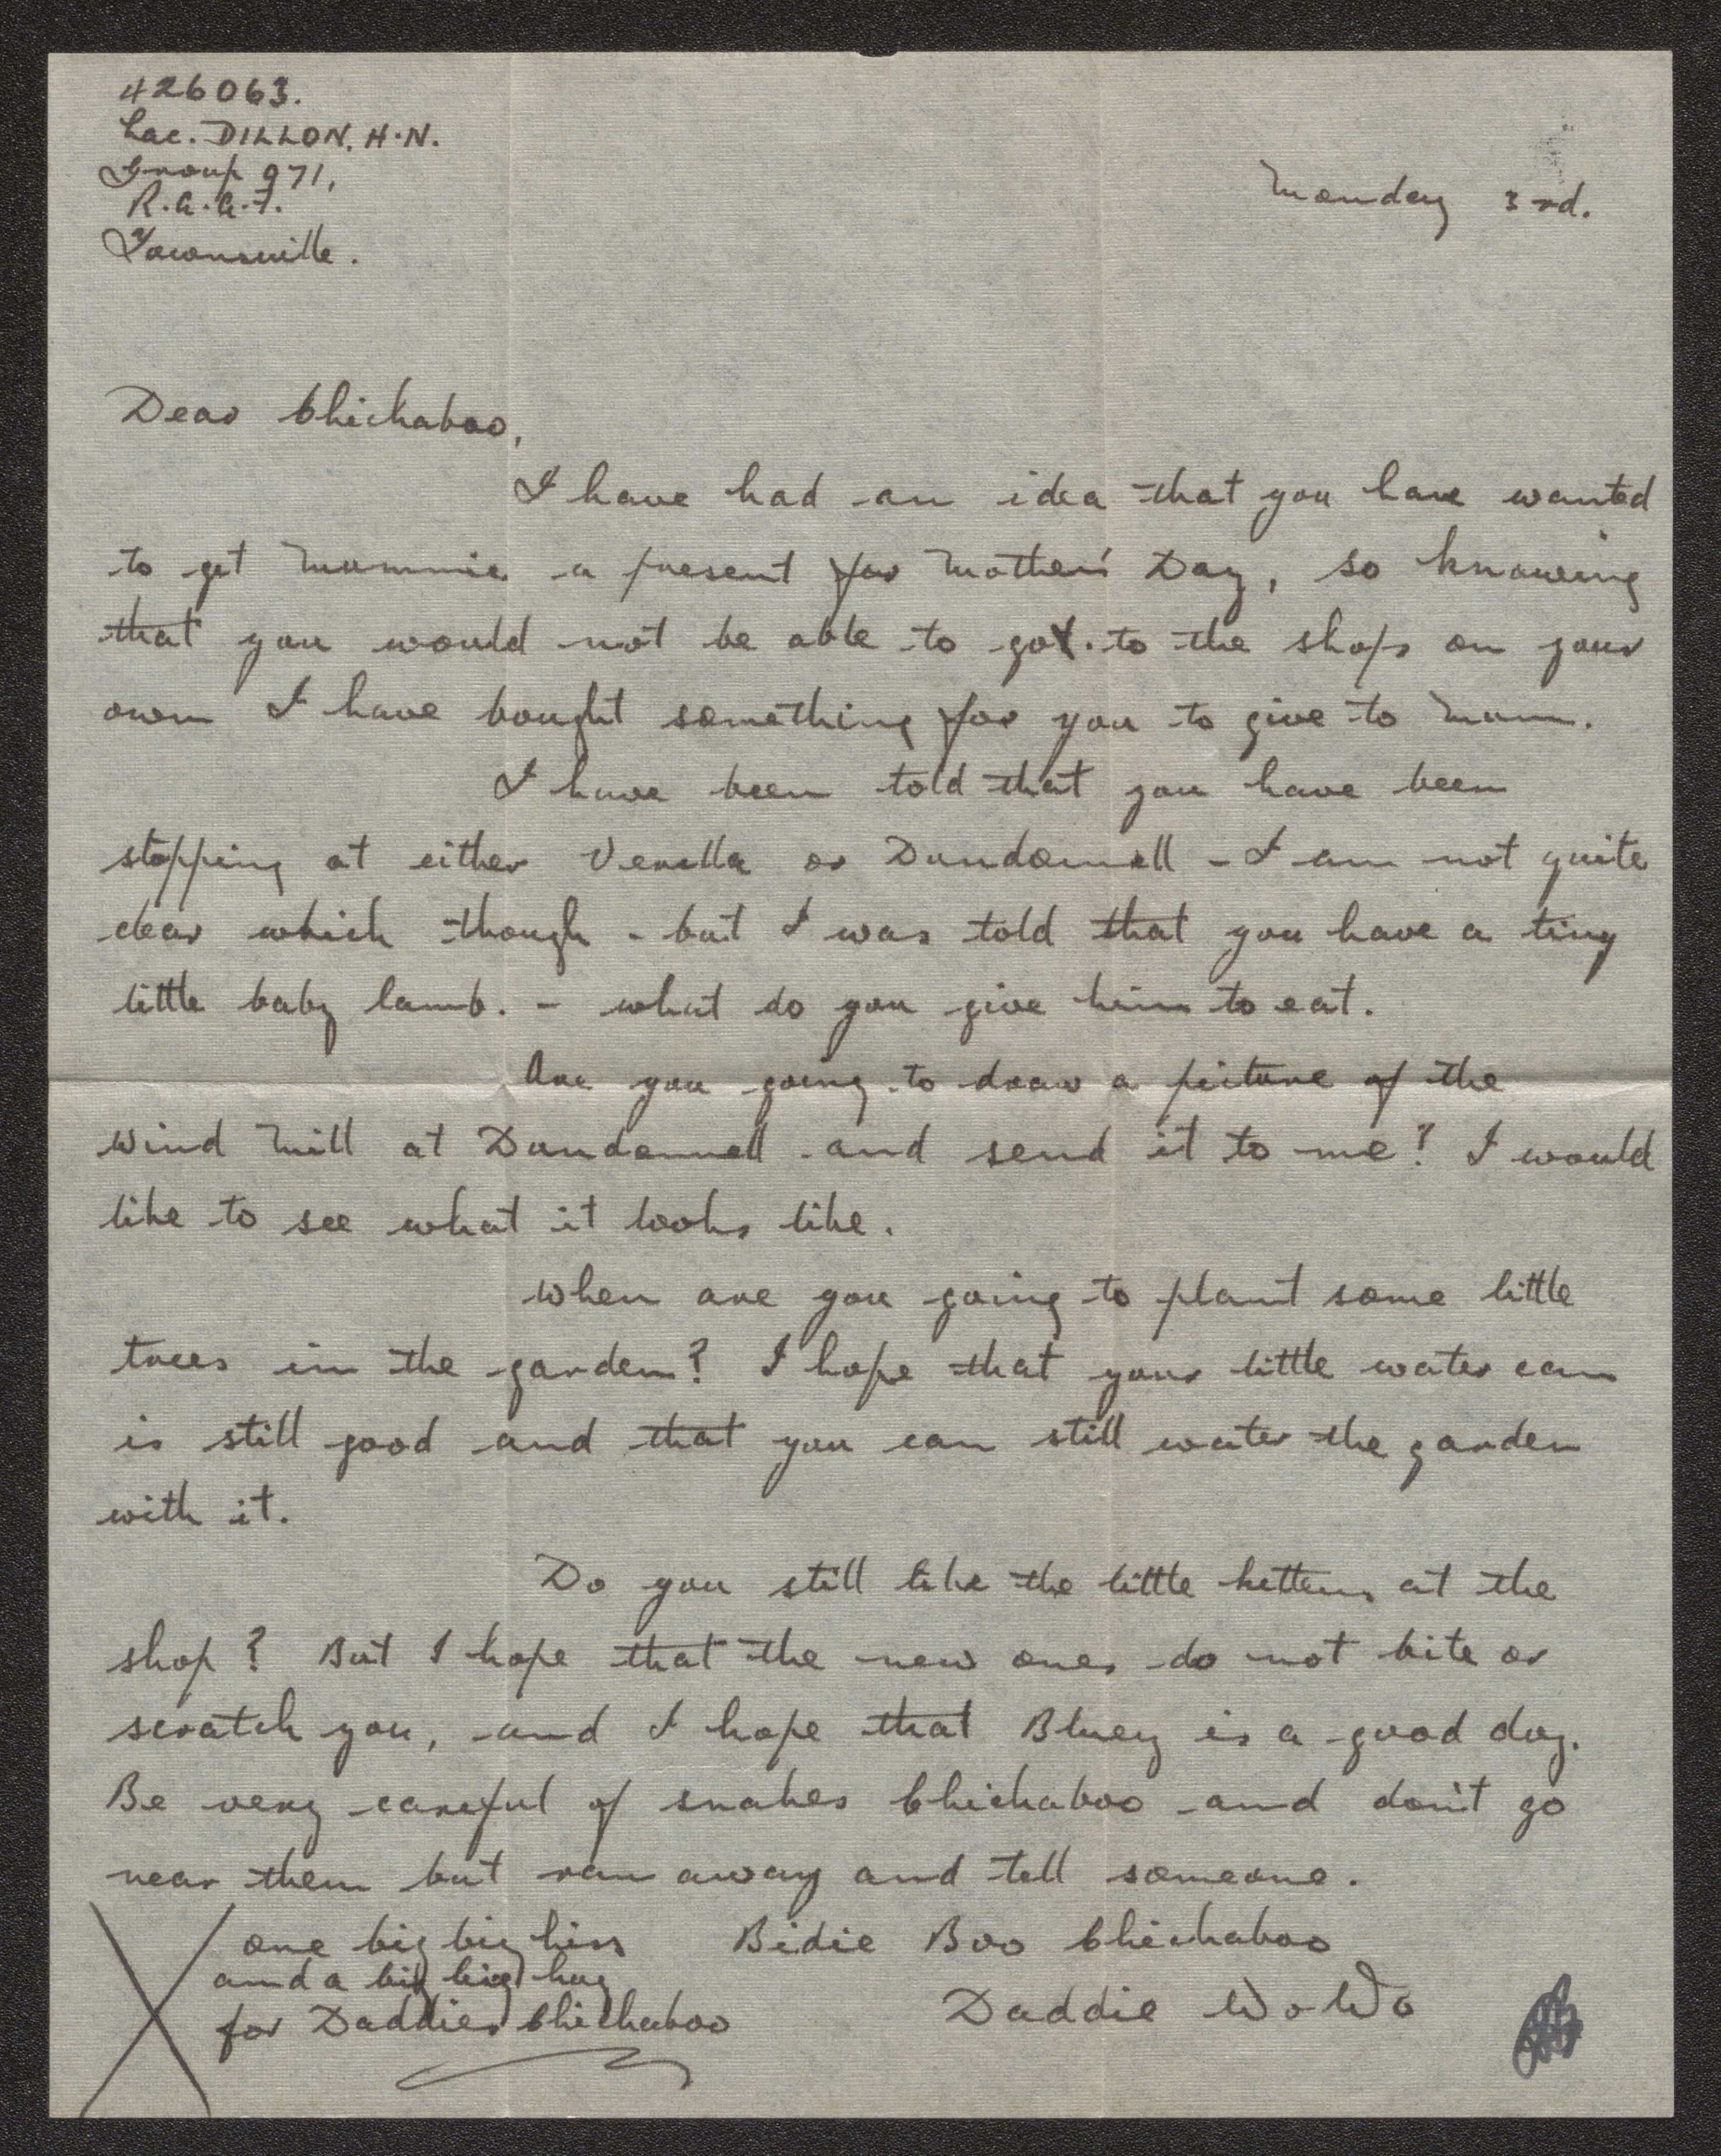 426063.
Lac. DILLON, H.N.
Group 971,
R.A.A.F.
Townsville.
Monday 3rd.
Dear Chickaboo,
I have had an idea that you have wanted
to get Mummie a present for Mother's Day, so knowing
that you would not be able to go to the shops on your
own I have bought something for you to give to Mum.
I have been told that you have been
stopping at either Verella or Dundonnell - I am not quite
clear which though - but I was told that you have a tiny
little baby lamb. - what do you give him to eat.
Are you going to draw a picture of the
Wind Mill at Dundonnell and send it to me? I would
like to see what it looks like.
When are you going to plant some little
trees in the garden? I hope that your little water can
is still good and that you can still water the garden
with it.
Do you still like the little kittens at the
shop? But I hope that the new ones do not bite or
scratch you, and I hope that Bluey is a good dog.
Be very careful of snakes Chickaboo and don't go
near them but run away and tell someone.
Bidie Boo Chickaboo
Daddie Wo Wo
X one big big kiss
and a big big hug
for Daddies Chickaboo